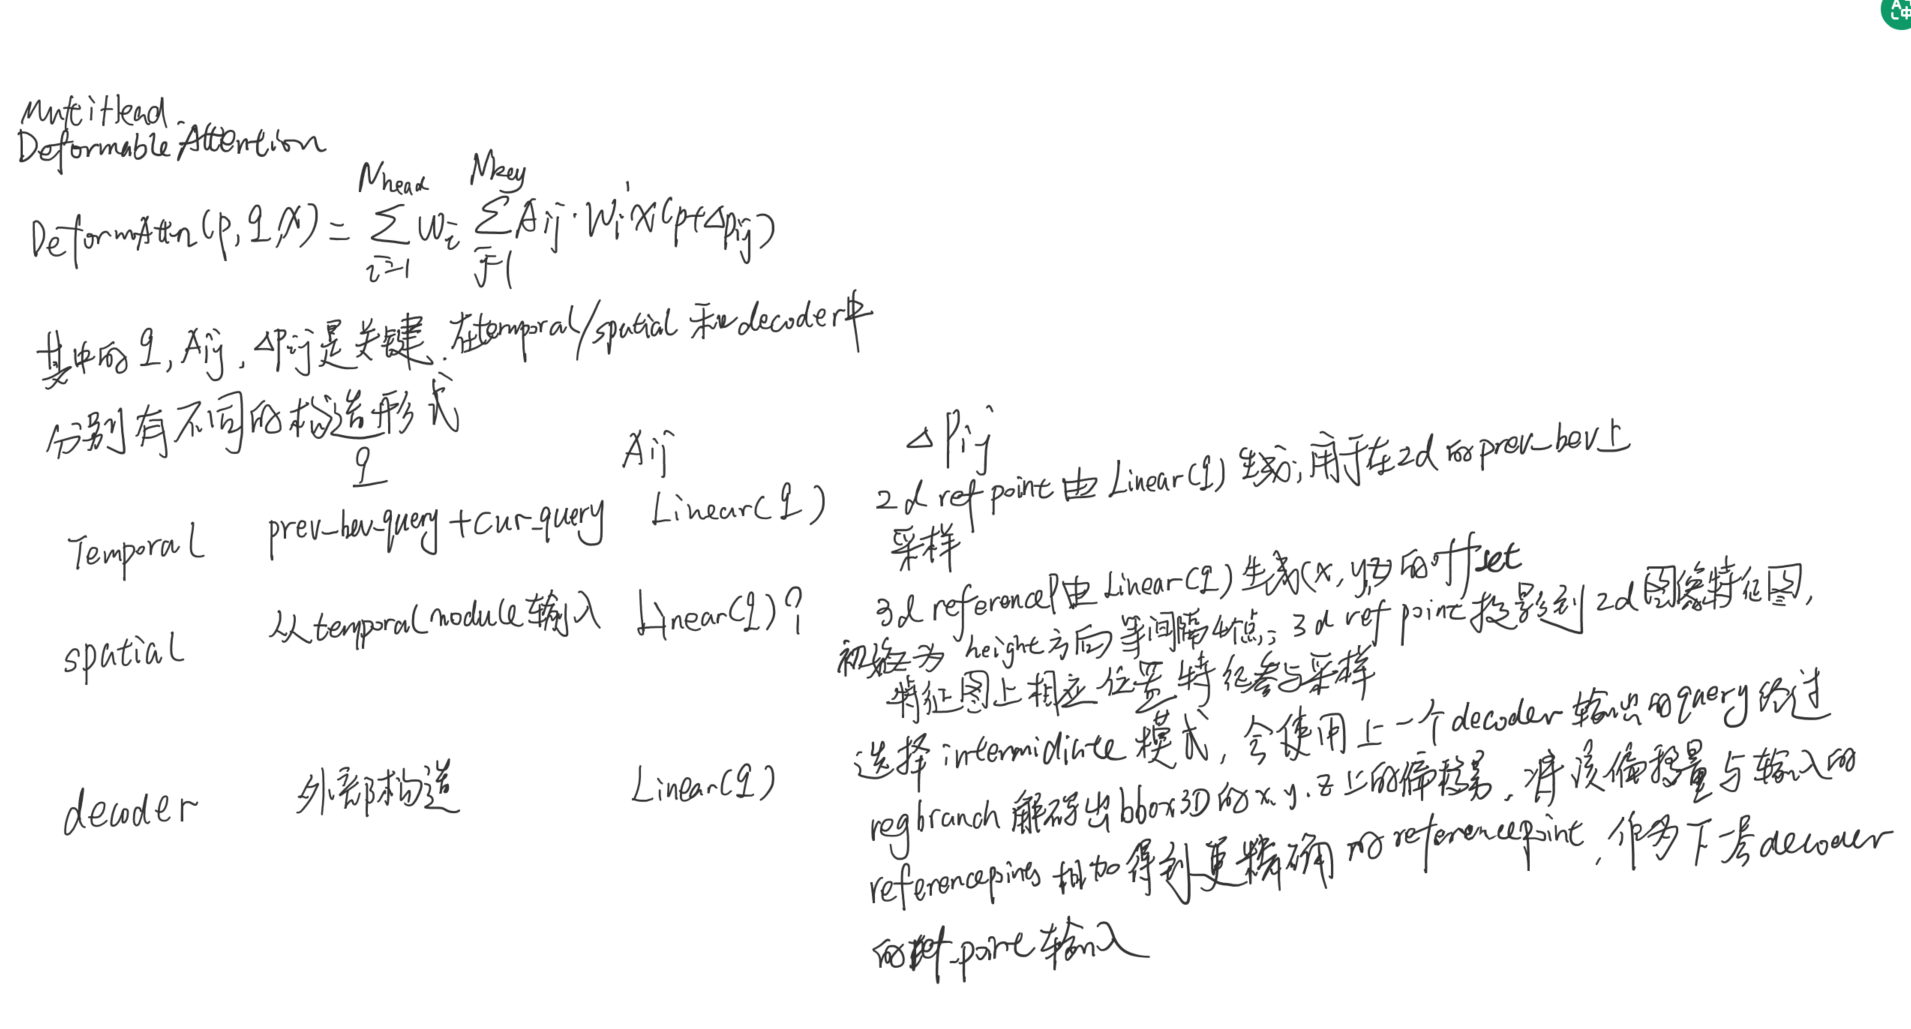 MuteiHead
Deformable Attention
DeformAttn(p, q, x) = Σ_{i=1}^{Nhead} Wi Σ_{j=1}^{Nkey} Aij · Wi' x(p+Δpij)
其中的 q, Aij, Δpij是关键. 在temporal/spatial 和decoder中
分别有不同的构造形式
q Aij ΔPij
Temporal prev_bev_query+cur_query Linear(q) 2d ref point由 Linear(q) 生成; 用于在2d的prev_bev上
采样
spatial 从temporal module输入 Linear(q)? 3d reference由 Linear(q) 生成(x, y, z)的offset
初始为 height方向等间隔4个点; 3d ref point投影到2d图像特征图,
特征图上相应位置特征参与采样
decoder 外部构造 Linear(q) 选择 intermidiate 模式, 会使用上一个decoder输出的query经过
regbranch 解码出bbox3D的x.y.z上的偏移量, 将该偏移量与输入的
referencepoints 相加得到更精确的referencepoint, 作为下一层decoder
的ref_point输入